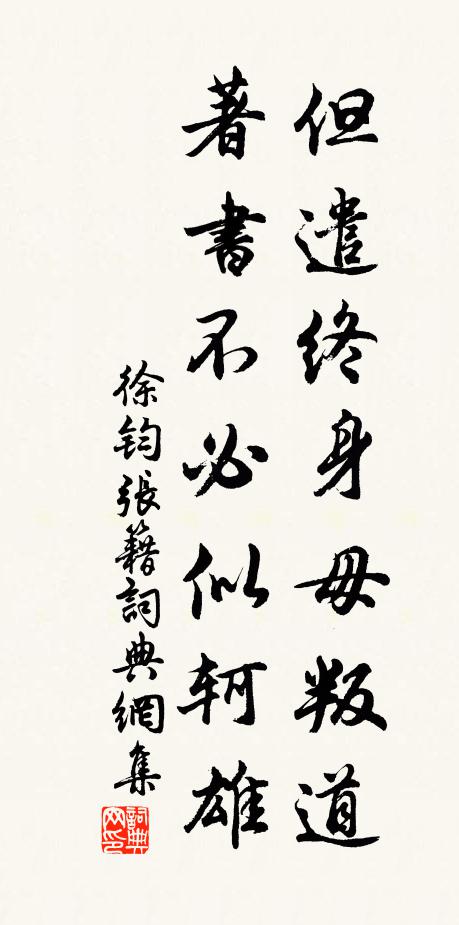 但遣終身毋叛道
著書不必似軻雄
徐鈞張籍詞典網集
詞典网印